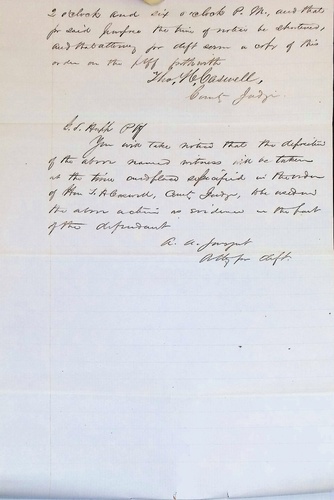 2 oclock and six oclock P. M. and that
for said purpose the time of notice be shortened,
and that attorney for deft serve a copy of this
order on the Plff forthwith
Thos. H. Caswell,
County Judge
Plff
You will take notice that the deposition
of the above named witness will be taken
at the time and place specified in the order
of Hon T. H. Caswell, County Judge, to be used on
the above action as evidence on the part
of the defendant
A. A.
Atty for deft.